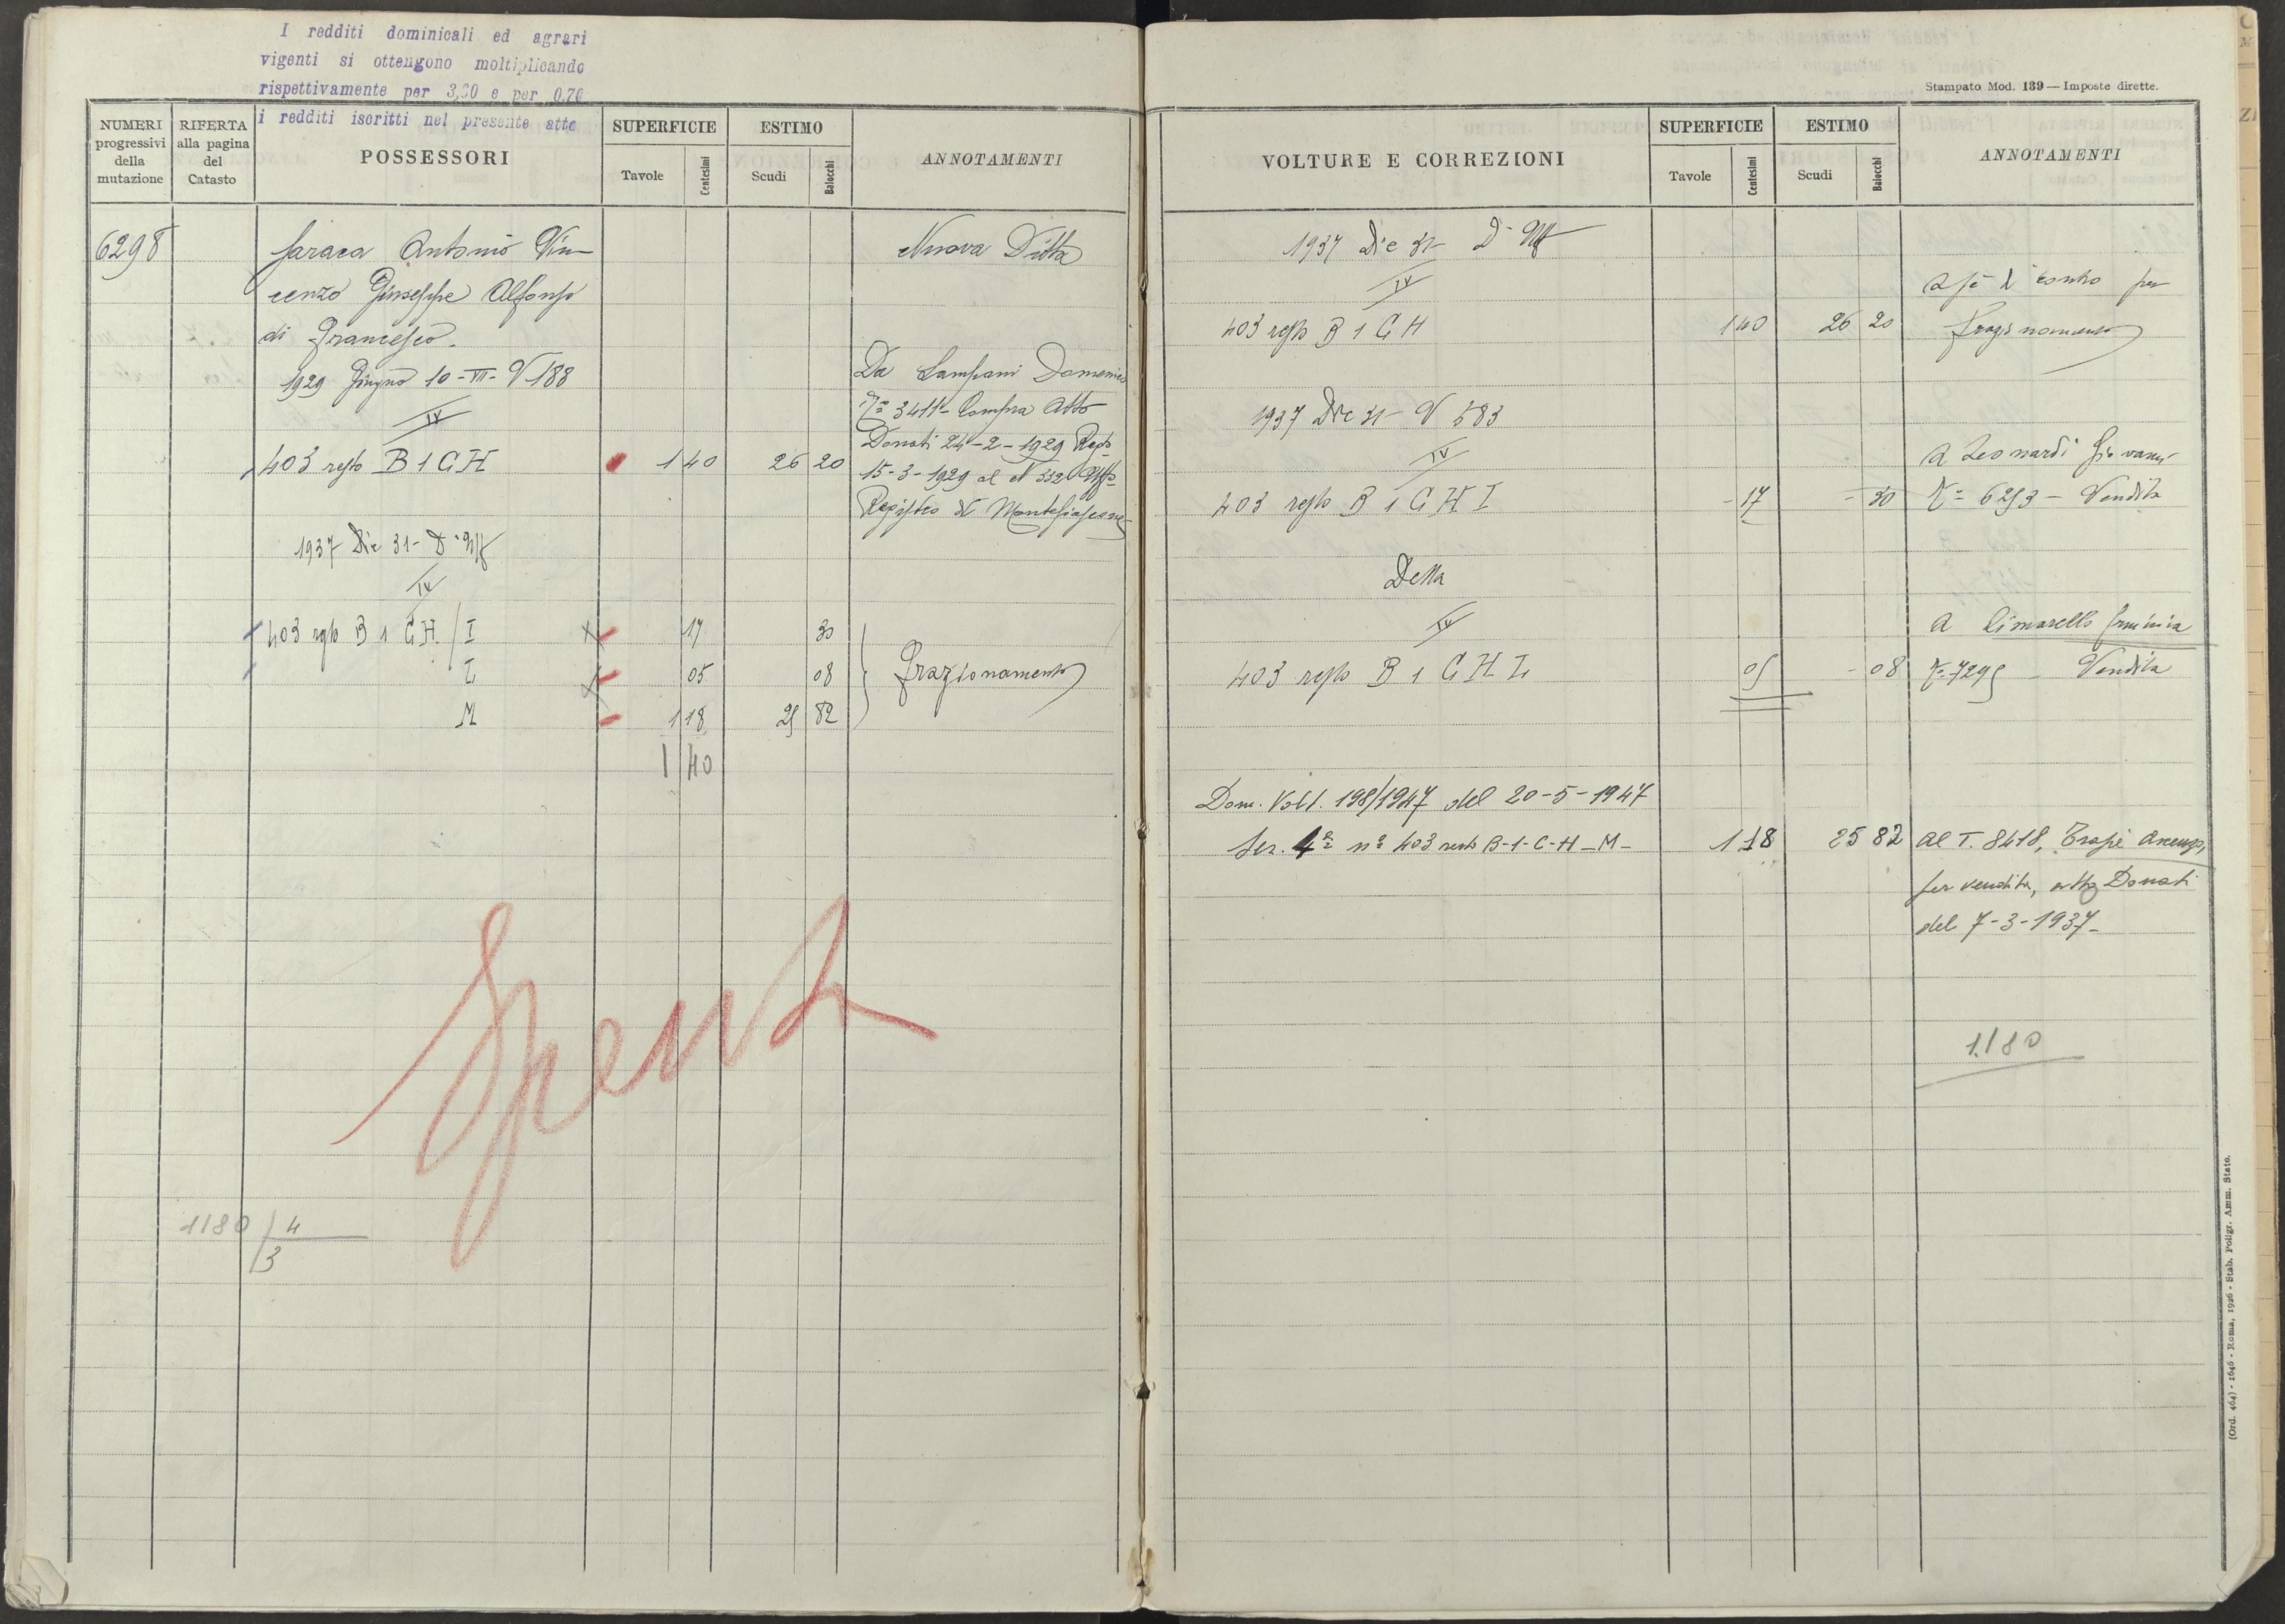 I redditi dominicali ed agrari
vigenti si ottengono moltiplicando
rispettivamente per 3,30 e per 0,76
i redditi iscritti nel presente atto
NUMERI
progressivi
della
mutazione
RIFERTA
alla pagina
del
Catasto
POSSESSORI
SUPERFICIE
Tavole
Centesimi
ESTIMO
Scudi
Baiocchi
ANNOTAMENTI
6298
Saraca Antonio Vin
cenzo Giuseppe Alfonso
di Francesco.
1929 Giugno 10-VII- V 188
IV
403 resto B 1 C H 1 40 26 20
Nuova Ditta
Da Lampani Domenico
N° 3411- Compra Atto
Donati 24-2-1929 Reg.
15-3-1929 al N 332 Uff°
Registro di Montefiascone
1937 Dic 31- D. Uff
IV
403 resto B 1 C H / I 17 30
L 05 08
M 1 18 25 82
Frazionamento
1 40
Spenta
1180 / 4
3
Stampato Mod. 139 — Imposte dirette.
VOLTURE E CORREZIONI
SUPERFICIE
Tavole
Centesimi
ESTIMO
Scudi
Baiocchi
ANNOTAMENTI
1937 Dic 31- D. Uff
IV
403 resto B 1 C H 1 40 26 20
A sè di contro per
frazionamento
1937 Dic 31- V 583
IV
403 resto B 1 C H I - 17 - 30
A Leonardi Giovanni
N° 6253 - Vendita
Detta
IV
403 resto B 1 C H L 05 - 08
A Cimarello Erminia
N° 7295 - Vendita
Dom. Volt. 198/1947 del 20-5-1947
Sez. 4ª n° 403 resto B-1-C-H-M- 1 18 25 82
Al T. 8418, Trapè
per vendita, atto Donati
del 7-3-1937-
1180
(Ord. 464) - 1646 - Roma, 1926 - Stab. Poligr. Amm. Stato.